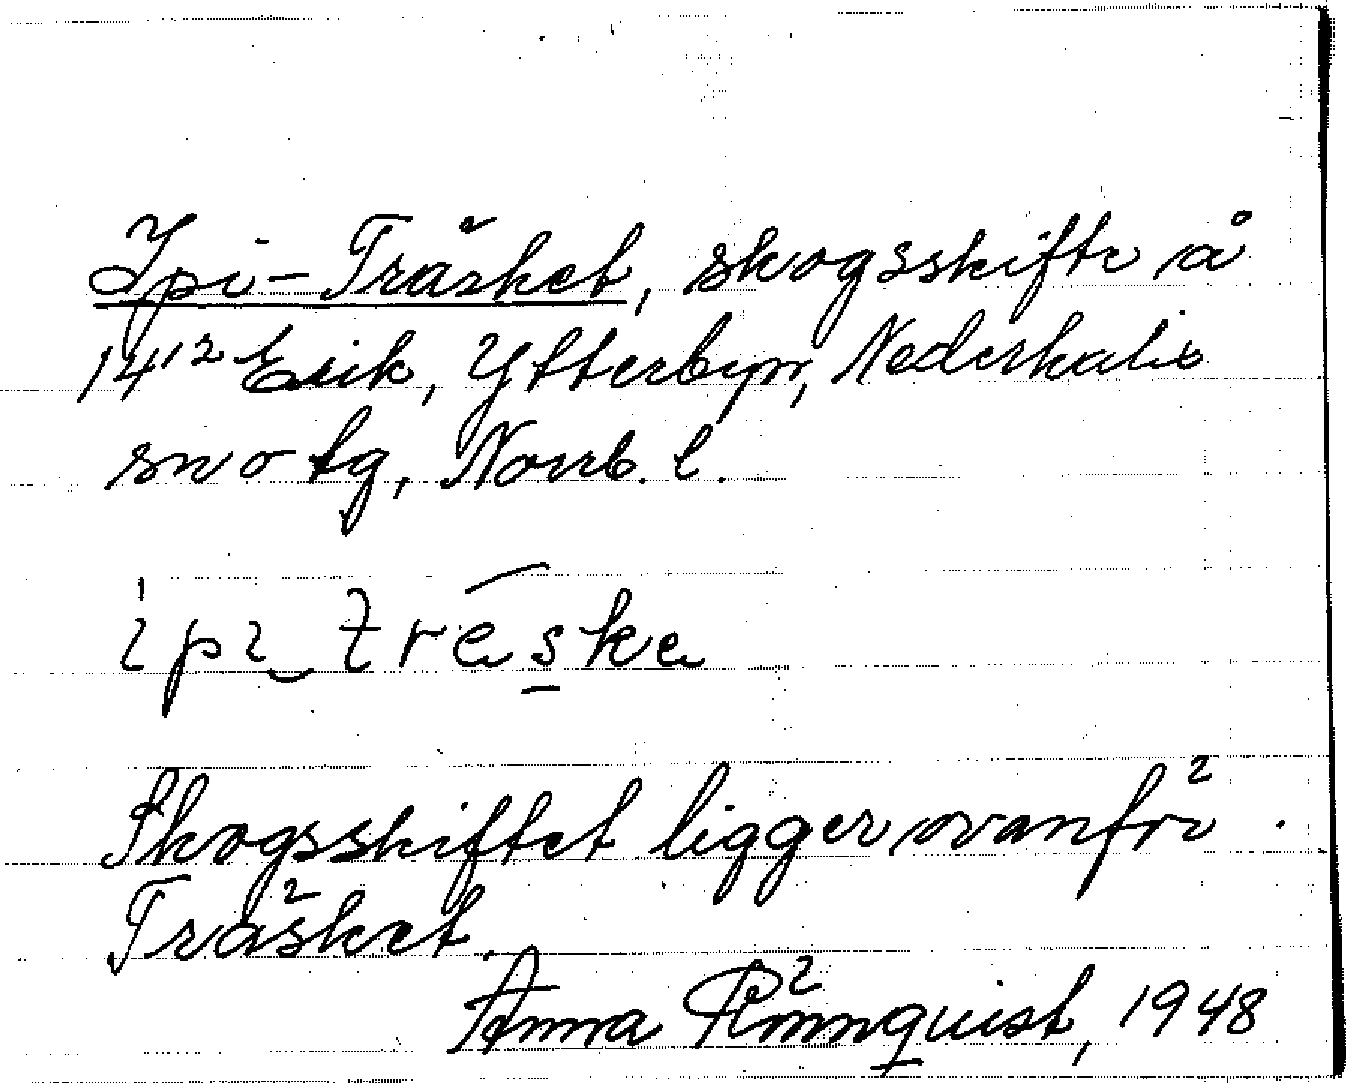 Ipi-Träsket, skogsskifte å
14¹² Erik, Ytterbyn, Nederkalix
sn o tg, Norrb. l.
ipi träska
Skogsskiftet ligger ovanför
Träsket.
Anna Rönnquist, 1948